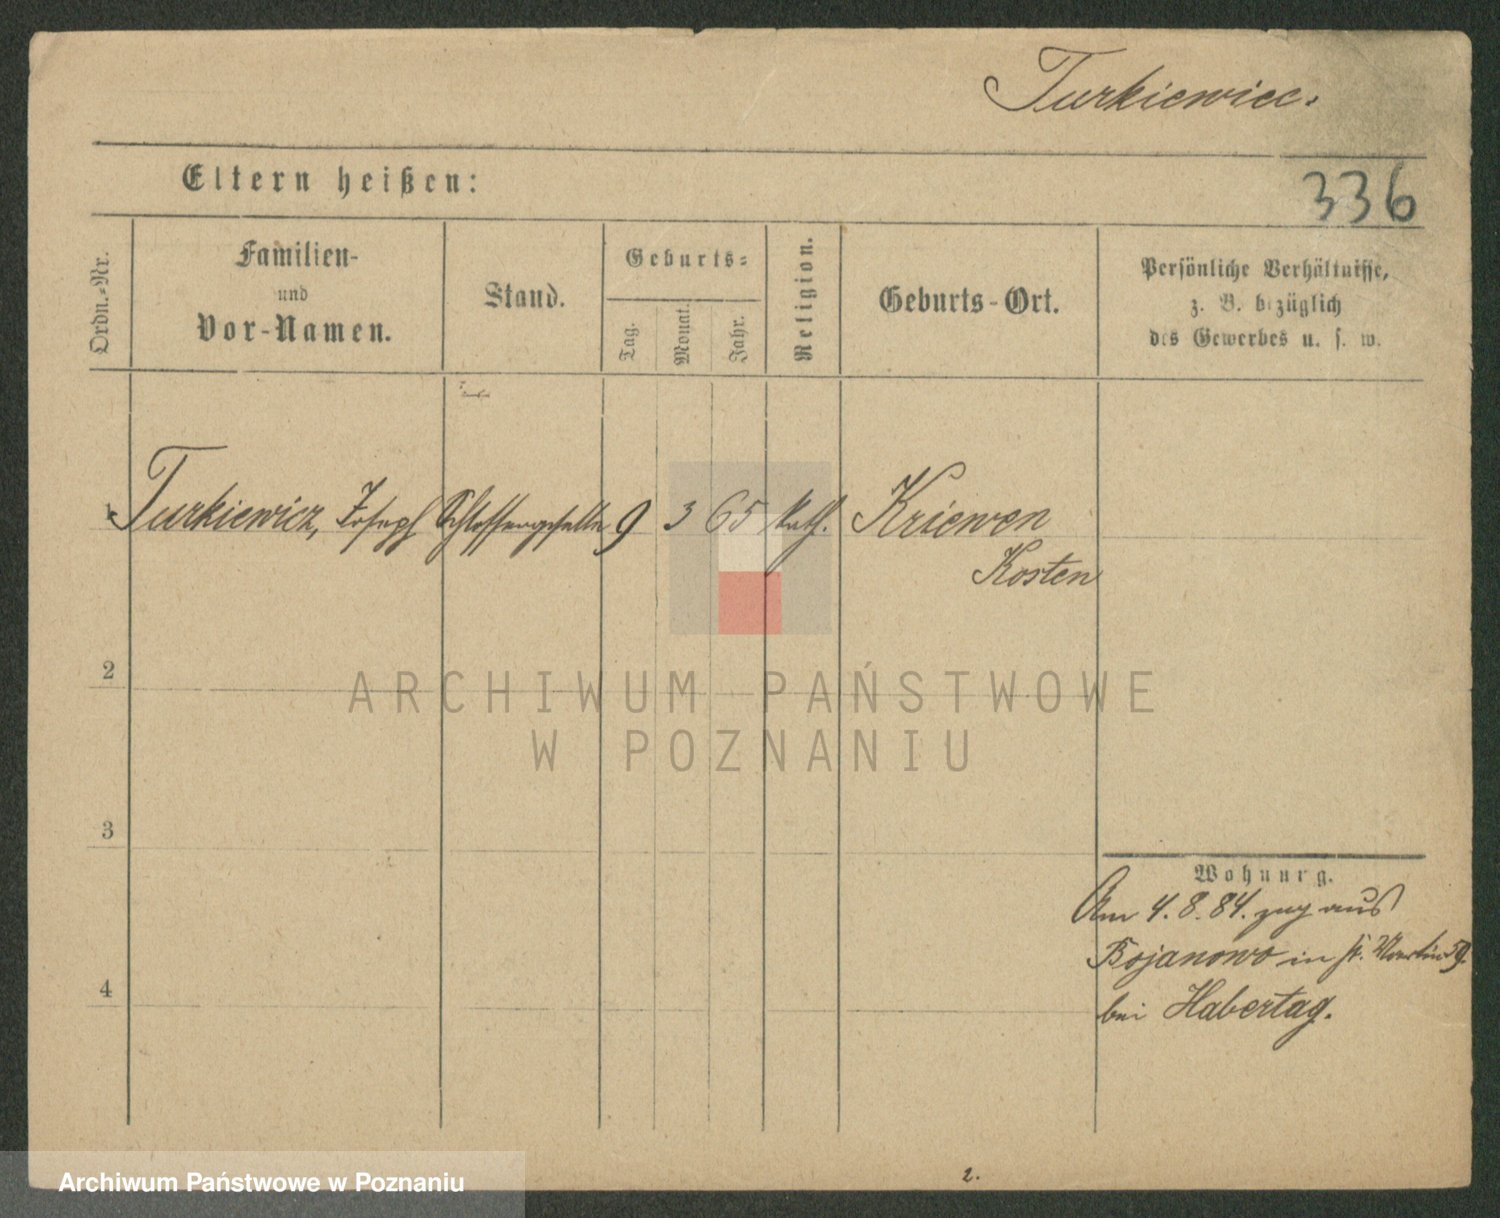 Turkiewicz.
Eltern heißen:
336
Ordn.-Nr.
Familien-
und
Vor-Namen.
Stand.
Geburts-
Tag.
Monat.
Jahr.
Religion.
Geburts-Ort.
Persönliche Verhältnisse,
z. B. bezüglich
des Gewerbes u. s. w.
1 Turkiewicz, Joseph Schlossergeselle 9 3 65 kath. Kriewen
Kosten
2
3
4
Wohnung.
Am 4.8.84. zug aus
Bojanowo in St. Martin 59.
bei Habertag.
2.
ARCHIWUM PAŃSTWOWE
W POZNANIU
Archiwum Państwowe w Poznaniu